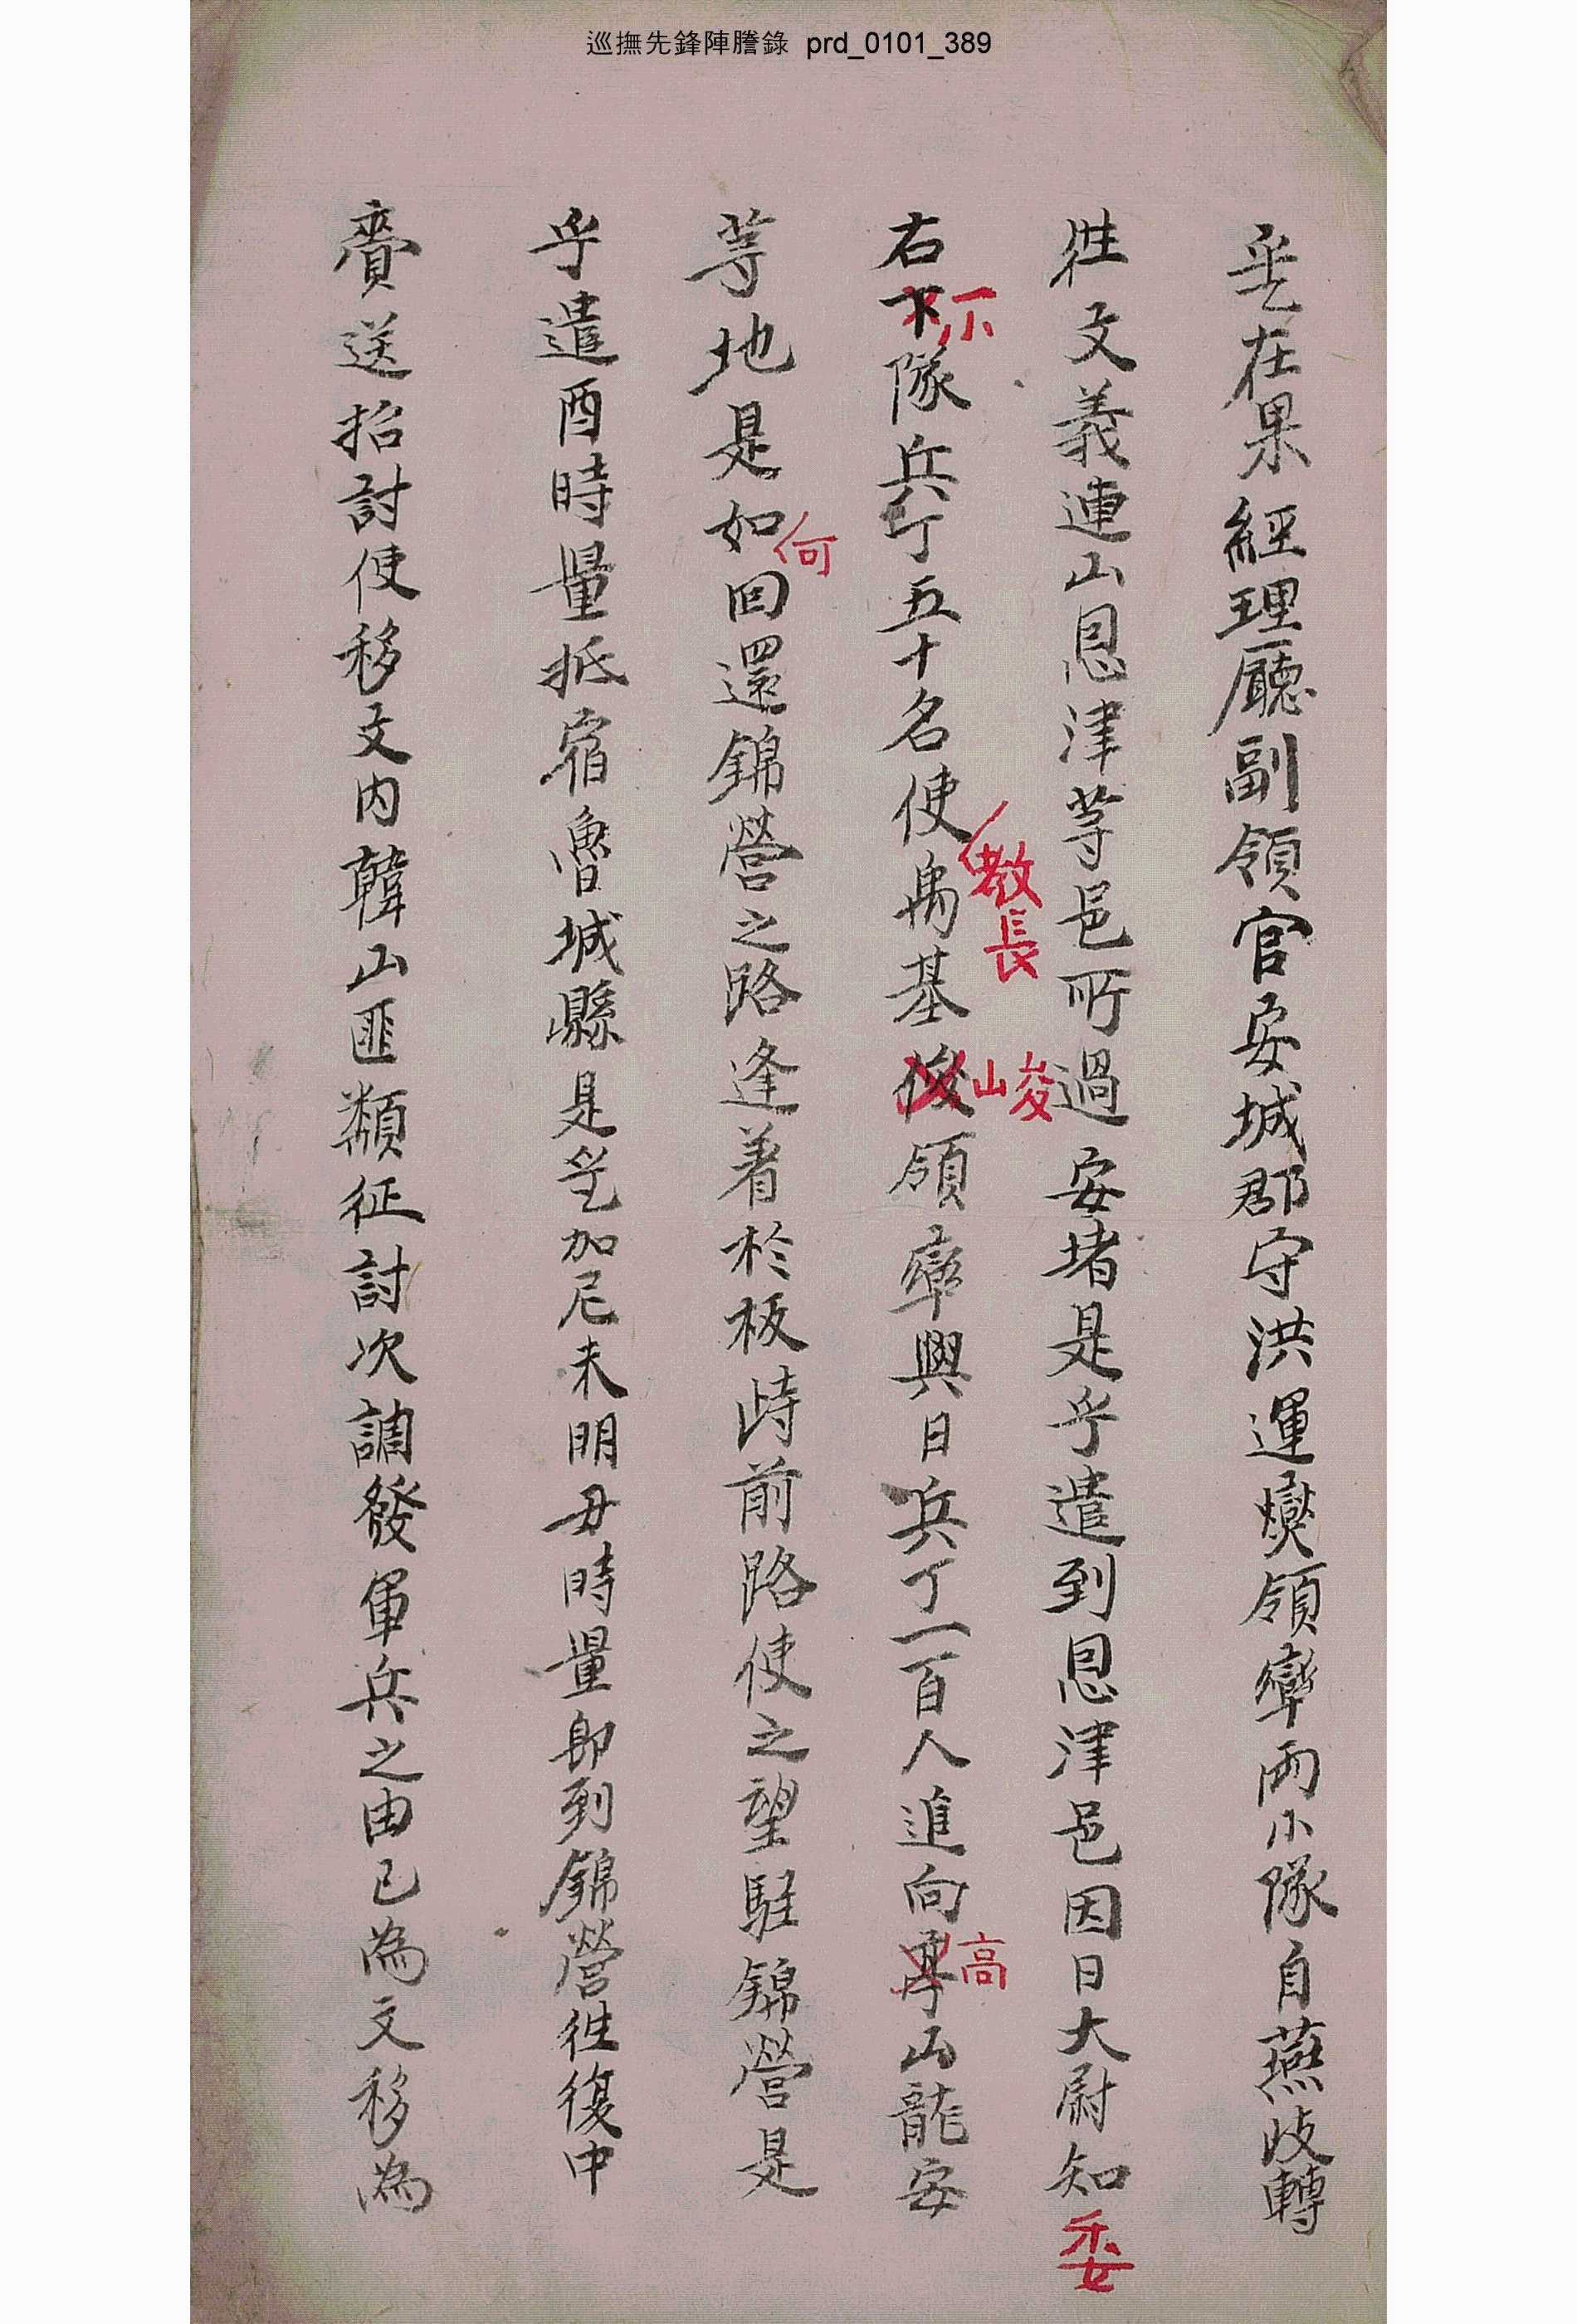 巡撫先鋒陣謄錄 prd_0101_389
乎乙在果經理廳副領官安城郡守洪運燮領率兩小隊自燕歧轉
往文義連山恩津等邑所過安堵是乎遣到恩津邑因日大尉知委
右下小隊兵丁五十名使敎長禹基俊峻領率與日兵丁一百人進向高山龍安
等地是如何回還錦營之路逢着於板峙前路使之望駐錦營是
乎遣酉時量抵宿魯城縣是乞加尼未明丑時量即到錦營往復中
賚送招討使移文內韓山匪類征討次調發軍兵之由已為文移為